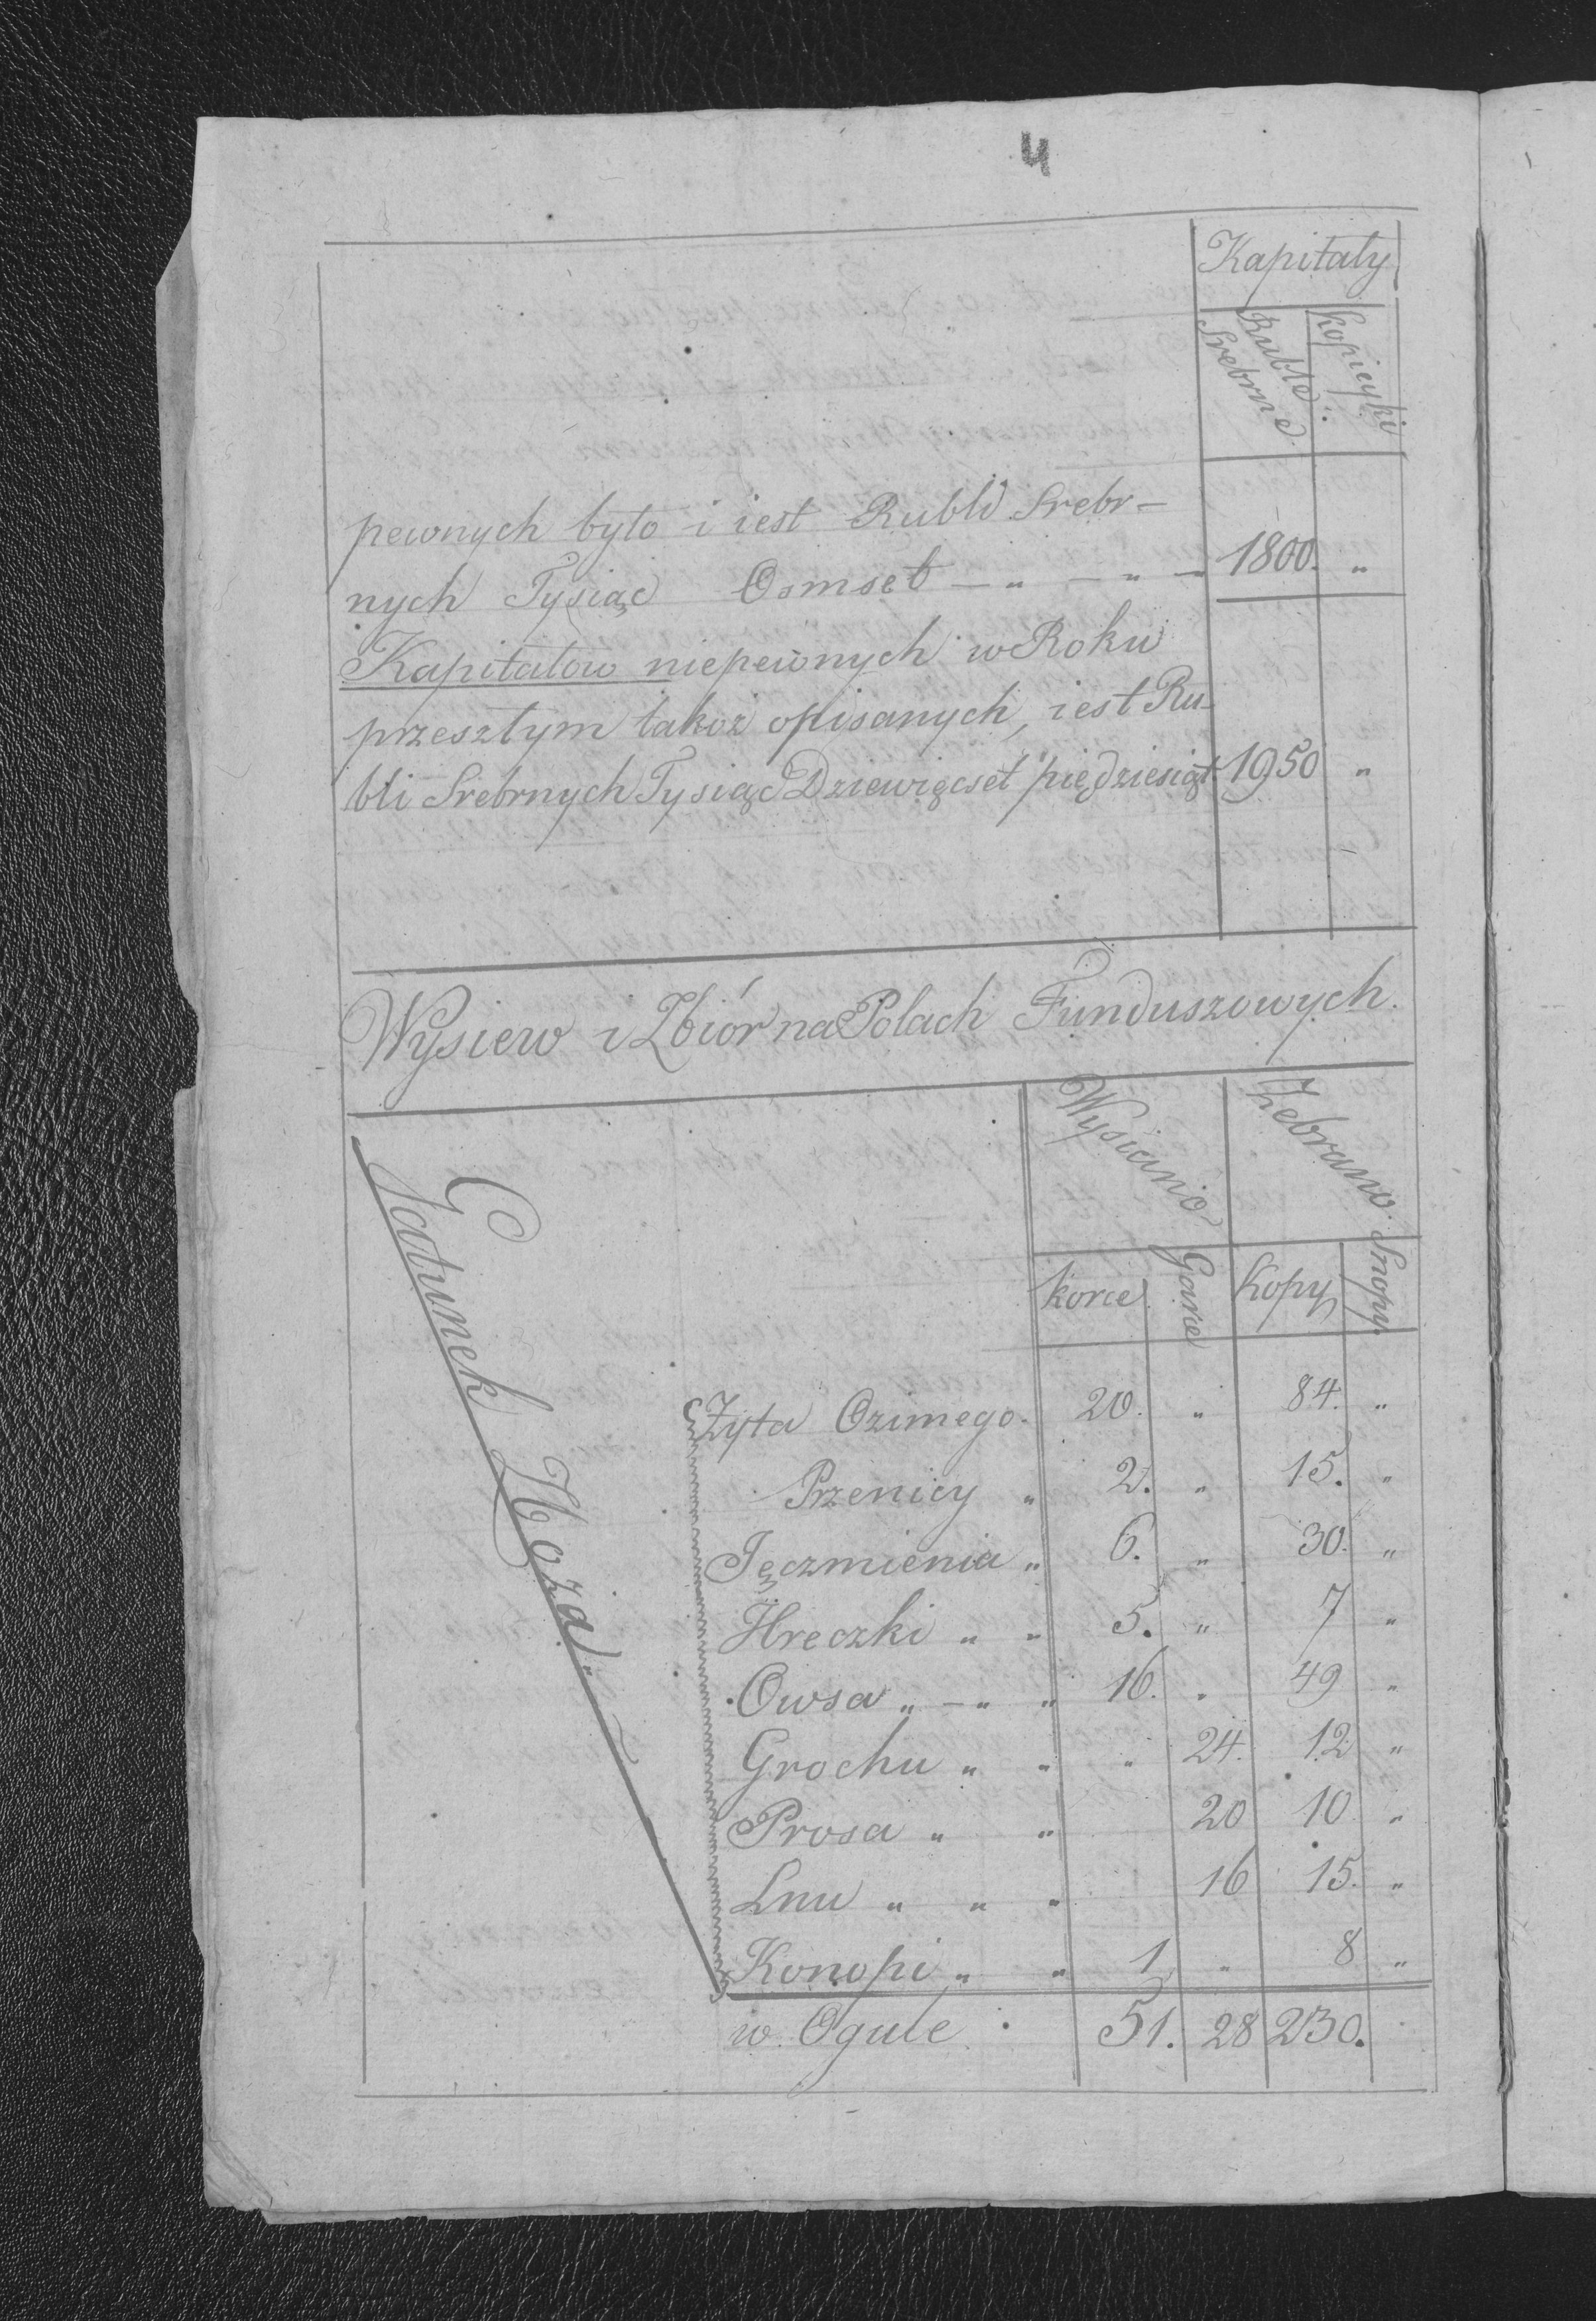 4
Kapitały
Ruble Srebrne
Kopieyki
pewnych było i iest Rubli Srebr-
nych Tysiąc Osmset — „ — „ — 1800. „
Kapitałow niepewnych w Roku
przeszłym takoż opisanych, iest Ru-
bli Srebrnych Tysiąc Dziewięcset piędziesiąt 1950 „
Wysiew i Zbiór na Polach Funduszowych.
Gatunek Zboża „
Wysiano Zebrano.
korce Garce Kopy Snopy.
Żyta Ozimego. 20. „ 84. „
Przenicy „ 2. „ 15. „
Jęczmienia „ 6. „ 30. „
Hreczki „ „ 5. „ 7 „
Owsa „ — „ „ 16. „ 49 „
Grochu „ „ „ 24. 12 „
Prosa „ „ 20 10 „
Lnu „ „ „ 16 15. „
Konopi „ „ 1 „ 8 „
w Ogule 51. 28 230.